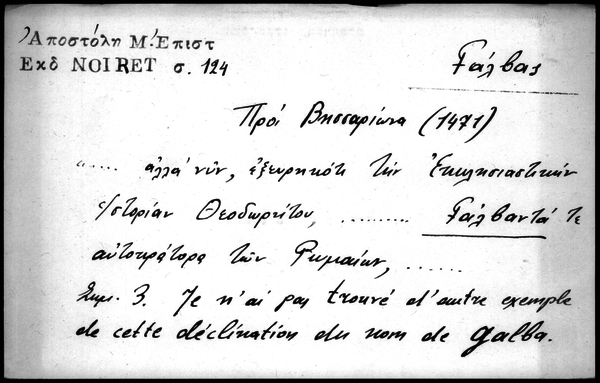 Ἀποστόλη Μ. Ἐπιστ
Εκδ NOIRET σ. 124
Γάλβας
Πρός Βησσαρίωνα (1471)
"..... ἀλλά νῦν, ἐξευρηκότι τήν Ἐκκλησιαστικήν
Ἱστορίαν Θεοδωρήτου, ......... Γάλβαντά τε
αὐτοκράτορα τῶν Ρωμαίων, ......
Σημ. 3. Je n'ai pas trouvé d'autre exemple
de cette déclination du nom de Galba.